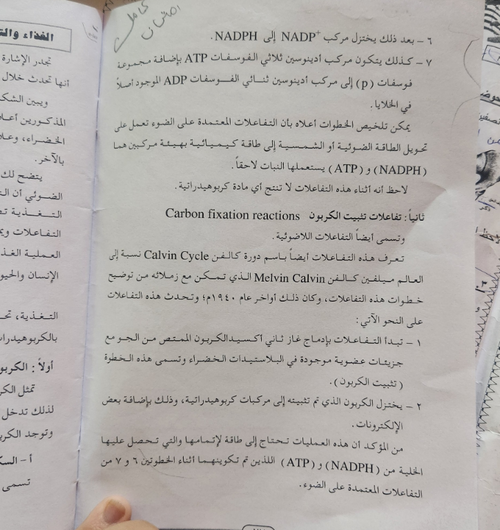 ٦ – بعد ذلك يختزل مركب NADP+ إلى NADPH.
٧ – كذلك يتكون مركب أدينوسين ثلاثي الفوسفات ATP بإضافة مجموعة
فوسفات (p) إلى مركب أدينوسين ثنائي الفوسفات ADP الموجود أصلاً
في الخلايا.
يمكن تلخيص الخطوات أعلاه بأن التفاعلات المعتمدة على الضوء تعمل على
تحويل الطاقة الضوئية أو الشمسية إلى طاقة كيميائية بهيئة مركبين هما
(NADPH) و (ATP) يستعملها النبات لاحقاً.
لاحظ أنه أثناء هذه التفاعلات لا تنتج أي مادة كربوهيدراتية.
ثانياً: تفاعلات تثبيت الكربون Carbon fixation reactions
وتسمى أيضاً التفاعلات اللاضوئية.
تعرف هذه التفاعلات أيضاً باسم دورة كالفن Calvin Cycle نسبة إلى
العالم ميلفين كالفن Melvin Calvin الذي تمكن مع زملائه من توضيح
خطوات هذه التفاعلات، وكان ذلك أواخر عام ١٩٤٠م؛ وتحدث هذه التفاعلات
على النحو الآتي:
١ – تبدأ التفاعلات بإدماج غاز ثاني أكسيد الكربون الممتص من الجو مع
جزيئات عضوية موجودة في البلاستيدات الخضراء وتسمى هذه الخطوة
(تثبيت الكربون).
٢ – يختزل الكربون الذي تم تثبيته إلى مركبات كربوهيدراتية، وذلك بإضافة بعض
الإلكترونات.
من المؤكد أن هذه العمليات تحتاج إلى طاقة لإتمامها والتي تحصل عليها
الخلية من (NADPH) و (ATP) اللذين تم تكوينهما أثناء الخطوتين ٦ و ٧ من
التفاعلات المعتمدة على الضوء.
الغذاء والت
تجدر الإشارة
أنها تحدث خلال
ويبين الشك
المذكورين أعلا
الخضراء، وعلا
بالآخر.
يتضح لك
الضوئي أن الت
التغذية تص
التفاعلات وي
العملية الغذ
الإنسان والحيو
التغذية، تح
بالكربوهيدرا
أولاً: الكربو
تمثل الكر
لذلك تدخل
وتوجد الكرب
أ – السك
تسمى